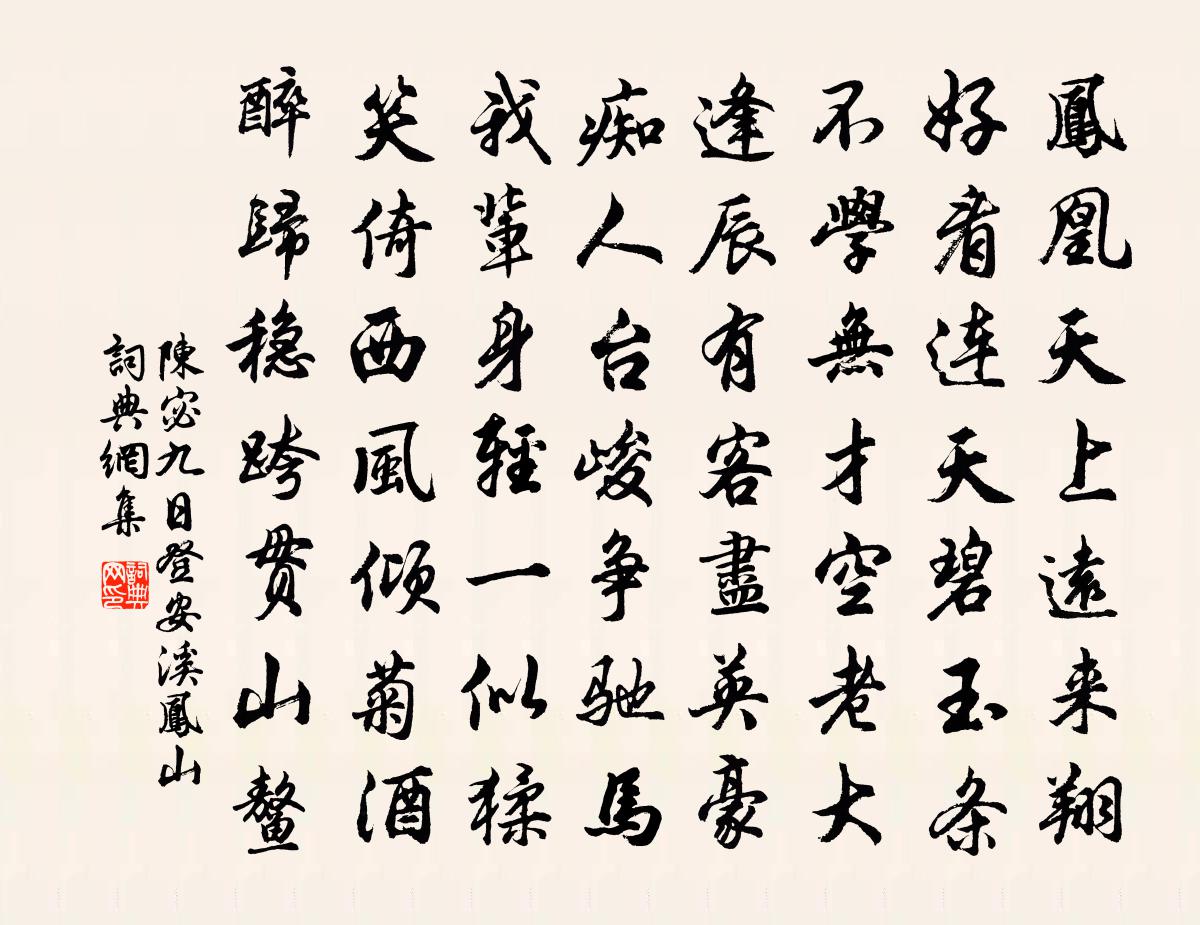 鳳凰天上遠来翔
好看连天碧玉条
不學無才空老大
逢辰有客盡英豪
痴人台峻争馳馬
我輩身輕一似猱
笑倚西風倾菊酒
醉歸穏跨贯山鳌
陳宓九日登安溪鳳山
詞典網集
詞典网印